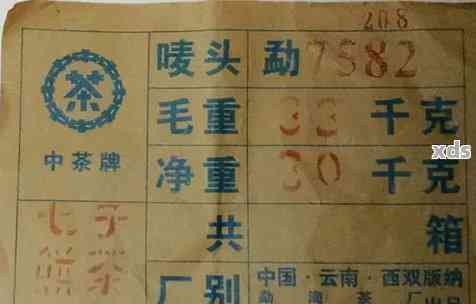 208
唛头 勐7582
茶
毛重 33 千克
中茶牌
净重 30 千克
xds
七子 共 箱
饼茶
厂别 中国·云南·西双版纳
勐海茶厂出品